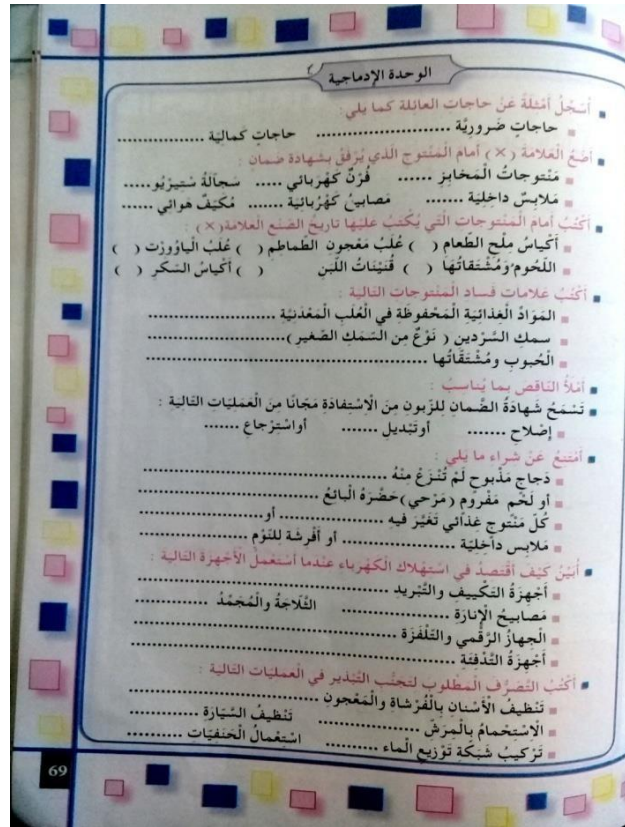 الوحدة الإدماجية
أسَجِّلُ أمْثِلَةً عَنْ حاجات العائلة كما يلي:
حاجات ضَروريَّة ........................ حاجاتٍ كماليَّة ................
أضَعُ الْعَلامَةَ (×) أمام المَنْتوج الَّذي يُرْفَقُ بشهادة ضَمان :
مَنْتوجاتُ الْمَخابِز ...... فُرْنٌ كَهْرَبائي ..... سَجَّالَةُ سْتيرْيُو.....
مَلابِسٌ داخليَّة ....... مَصابيحُ كَهْرُبائِيَّة ....... مُكَيِّفٌ هَوائي ......
أكْتُبُ أمامَ الْمَنْتوجاتِ الَّتي يُكْتَبُ عليْها تاريخُ الصُّنْعِ الْعَلامَةَ (×) :
أكْياسُ مِلْحِ الطَّعام ( ) عُلَبُ مَعْجون الطَّماطِم ( ) عُلَبُ الْياوُورْت ( )
اللُّحُوم وَمُشْتَقاتُهَا ( ) قُنَيْناتُ اللَّبَن ( ) أكْياسُ السُّكَّر ( )
أكْتُبُ عَلامات فَساد الْمَنْتوجات التَّالية :
المَوَادُّ الْغِذائِيَّة الْمَحْفوظة في الْعُلَبِ الْمَعْدَنيَّة ....................
سمك السَّرْدين ( نَوْعٌ مِن السَّمَكِ الصَّغير )........................
الْحُبوبِ ومُشْتَقَّاتُها ................................................
أمْلَأُ النَّاقِصَ بما يُناسبُ :
تَسْمَحُ شَهادَةُ الضَّمان للزَّبونِ مِنَ الْاسْتفادَةِ مَجَّانًا مِنَ الْعَمَليَّات التَّالية :
إصْلاح ....... أوتَبْديل ....... أواسْترْجاع .......
أمْتنعُ عَنْ شراء ما يَلي :
دَجاج مَذْبوح لَمْ تُنْزَعْ مِنْهُ ........................................
أو لَحْم مَفْروم (مَرْحي) حَضَّرَهُ الْبائعُ ............................
كُلِّ مَنْتوج غذائي تَغَيَّرَ فيه .................... أو....................
مَلابِس داخليَّة .................... أو أفْرشَة للنَّوْم ................
أُبَيِّنُ كَيْفَ أقْتَصدُ في اسْتهْلاك الْكَهْرَباء عنْدما أسْتَعْملُ الْأجْهزَة التَّالية :
أجْهزَةُ التَّكْييف والتَّبْريد ........................................
مَصابيحُ الْإنارَة .................... الثَّلَّاجَةُ والْمُجَمِّدُ ............
الْجهازُ الرَّقْمي والتَّلْفَزَة ........................................
أجْهزَةُ التَّدْفِئَة ........................................
أكْتُبُ التَّصَرُّف الْمَطْلوب لتَجَنُّب التَّبْذير في الْعمليَّات التالية :
تَنْظيفُ الْأسْنان بالْفُرْشاة والْمَعْجون ............................
الْاسْتِحْمامُ بالْمِرَشّ .................... تَنْظيفُ السَّيَارَة ............
تَرْكيبُ شَبَكَة تَوْزيع الْماء ............ اسْتعْمالُ الْحَنَفيَّات ............
69